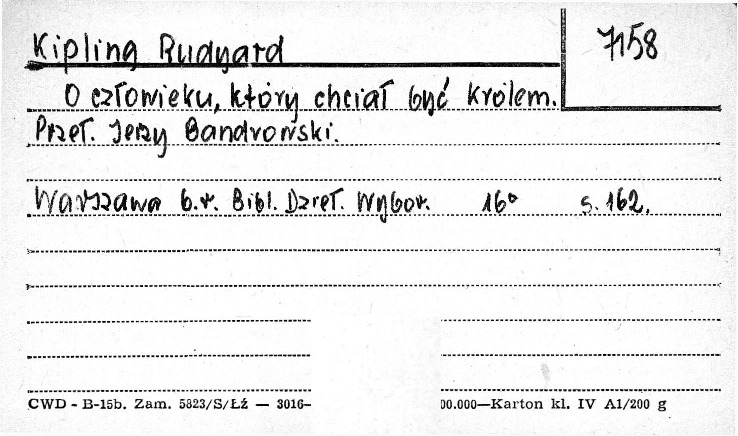 Kipling Rudyard
7158
O człowieku, który chciał być królem.
Przeł. Jerzy Bandrowski.
Warszawa b.r. Bibl. Dzieł. Wybor. 16° s. 162.
CWD - B-15b. Zam. 5823/S/Łź — 3016— 00.000—Karton kl. IV A1/200 g